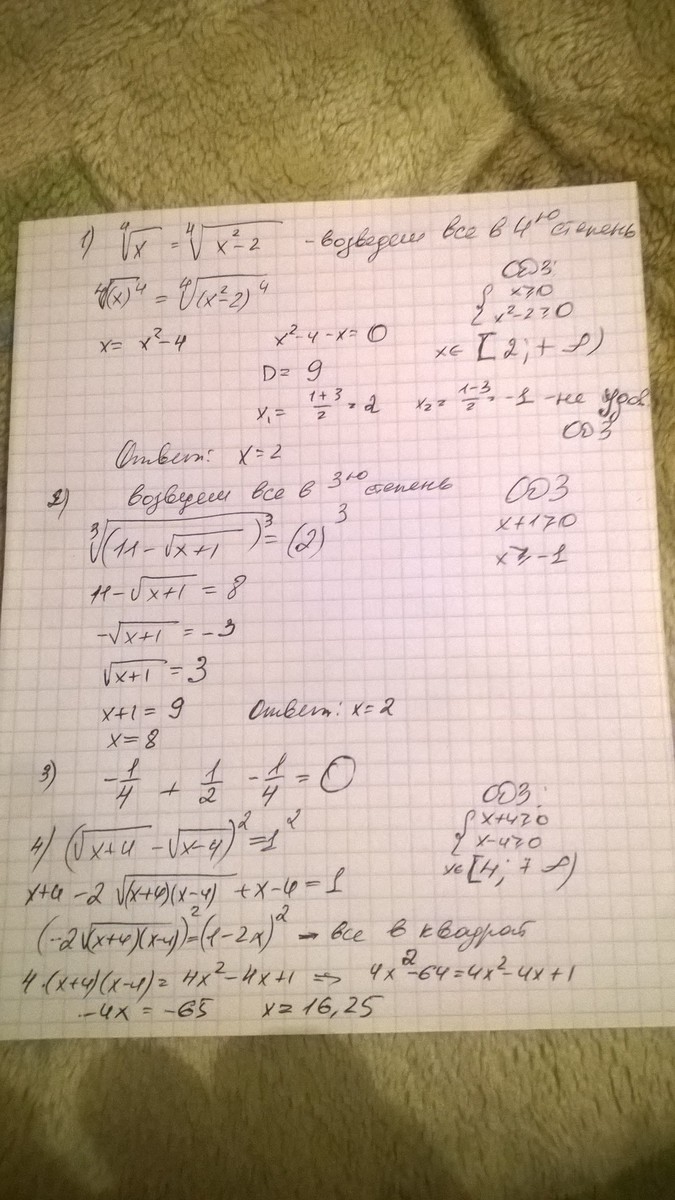 1) ⁴√x = ⁴√(x²-2) - возведем все в 4ю степень
⁴√(x)⁴ = ⁴√(x²-2)⁴
ОДЗ:
{ x≥0
x²-2≥0
x = x²-4
x²-4-x=0
x∈ [2; +∞)
D = 9
x₁ = (1+3)/2 = 2
x₂ = (1-3)/2 = -1 - не удов.
ОДЗ
Ответ: x=2
2) возведем все в 3ю степень
ОДЗ
x+1≥0
x≥-1
³√(11-√(x+1))³ = (2)³
11-√(x+1) = 8
-√(x+1) = -3
√(x+1) = 3
x+1 = 9
x=8
Ответ: x=2
3) -1/4 + 1/2 - 1/4 = 0
ОДЗ:
{ x+4≥0
x-4≥0
x∈[4; +∞)
4) (√(x+4) - √(x-4))² = 1²
x+4 - 2√((x+4)(x-4)) + x-4 = 1
(-2√((x+4)(x-4)))² = (1-2x)² - все в квадрат
4·(x+4)(x-4) = 4x²-4x+1 ⇒ 4x²-64=4x²-4x+1
-4x = -65 x = 16,25